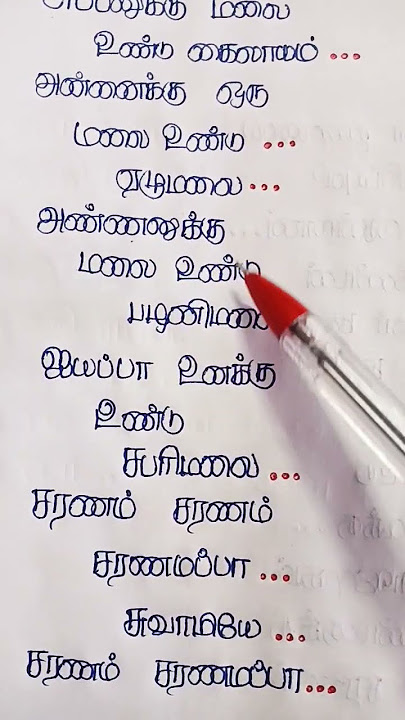 மலை
உண்டு கைலாசம் ...
அன்னைக்கு ஒரு
மலை உண்டு ...
ஏழுமலை ...
அண்ணனுக்கு
மலை உண்டு
பழனிமலை
ஐயப்பா உனக்கு
உண்டு
சபரிமலை ...
சரணம் சரணம்
சரணமப்பா ...
சுவாமியே ...
சரணம் சரணமப்பா ...